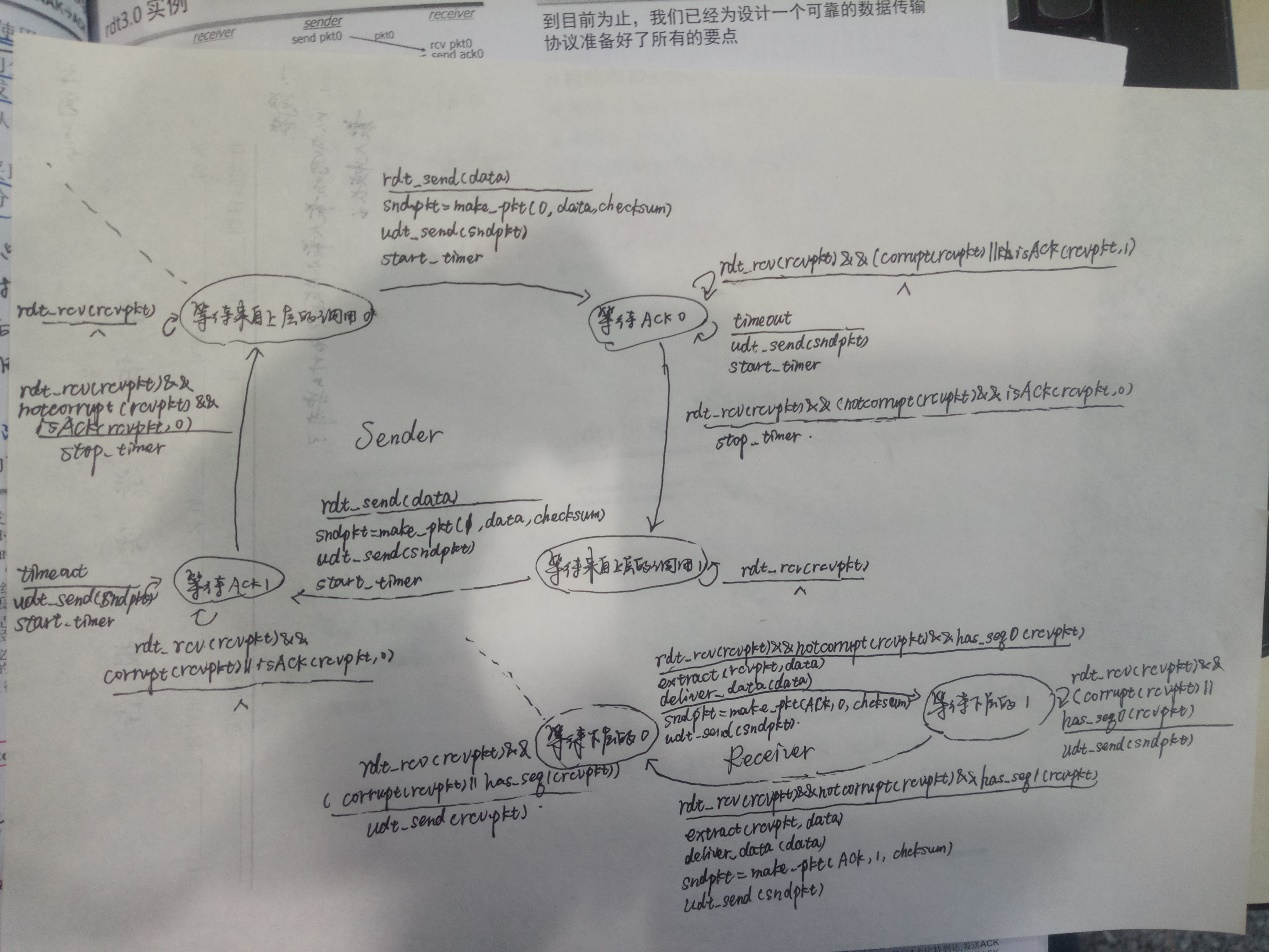 rdt3.0 实例
receiver
sender
receiver
send pkt0
pkt0
rcv pkt0
send ack0
到目前为止，我们已经为设计一个可靠的数据传输
协议准备好了所有的要点
rdt_send(data)
sndpkt=make_pkt(0,data,checksum)
udt_send(sndpkt)
start_timer
rdt_rcv(rcvpkt)
Λ
等待来自上层的调用0
等待ACK0
rdt_rcv(rcvpkt)&&(corrupt(rcvpkt)||isACK(rcvpkt,1)
Λ
timeout
udt_send(sndpkt)
start_timer
rdt_rcv(rcvpkt)&&
notcorrupt(rcvpkt)&&
isACK(rcvpkt,0)
stop_timer
rdt_rcv(rcvpkt)&&(notcorrupt(rcvpkt)&&isACK(rcvpkt,0)
stop_timer.
Sender
rdt_send(data)
sndpkt=make_pkt(1,data,checksum)
udt_send(sndpkt)
start_timer
timeout
udt_send(sndpkt)
start_timer
等待ACK1
等待来自上层的调用1
rdt_rcv(rcvpkt)
Λ
rdt_rcv(rcvpkt)&&
corrupt(rcvpkt)||isACK(rcvpkt,0)
Λ
rdt_rcv(rcvpkt)&&notcorrupt(rcvpkt)&&has_seq0(rcvpkt)
extract(rcvpkt,data)
deliver_data(data)
sndpkt=make_pkt(ACK,0,checksum)
udt_send(sndpkt).
等待下层的0
等待下层的1
rdt_rcv(rcvpkt)&&
(corrupt(rcvpkt)||
has_seq0(rcvpkt)
udt_send(sndpkt)
Receiver
rdt_rcv(rcvpkt)&&
(corrupt(rcvpkt)||has_seq1(rcvpkt))
udt_send(rcvpkt).
rdt_rcv(rcvpkt)&&notcorrupt(rcvpkt)&&has_seq1(rcvpkt)
extract(rcvpkt,data)
deliver_data(data)
sndpkt=make_pkt(ACK,1,checksum)
udt_send(sndpkt)